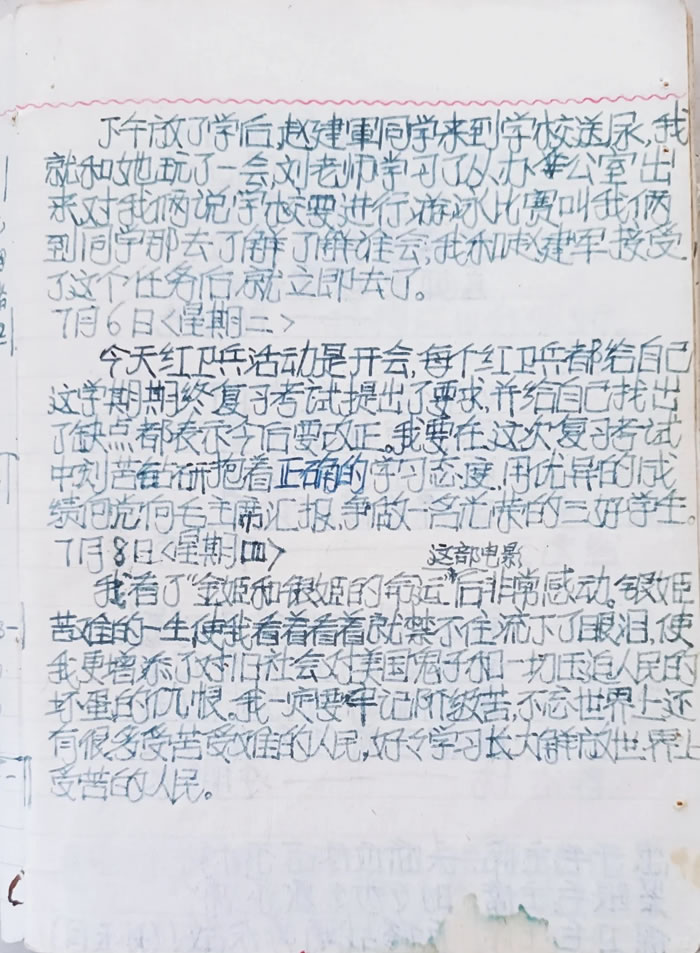 下午放了学后,赵建軍同学来到学校送尿,我
就和她玩了一会,刘老师学习了从办公室出
来对我俩说学校要进行游泳比赛叫我俩
到同学那去了解了解谁会,我和赵建军接受
了这个任务后就立即去了。
7月6日<星期二>
今天红卫兵活动是开会,每个红卫兵都给自己
这学期期终复习考试提出了要求,并给自己找出
了缺点都表示今后要改正。我要在这次复习考试
中刻苦钻研抱着正确的学习态度,用优异的成
绩向党向毛主席汇报,争做一名光荣的三好学生。
7月8日<星期四>
这部电影
我看了"金姬和银姬的命运"后非常感动。银姬
苦难的一生,使我看着看着就禁不住流下了眼泪,使
我更增添了对旧社会对美国鬼子和一切压迫人民的
坏蛋的仇恨。我一定要牢记阶级苦,不忘世界上还
有很多受苦受难的人民,好好学习长大解放世界上
受苦的人民。